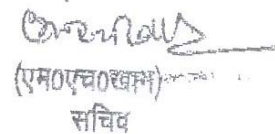 (एम०एच०खान)
सचिव